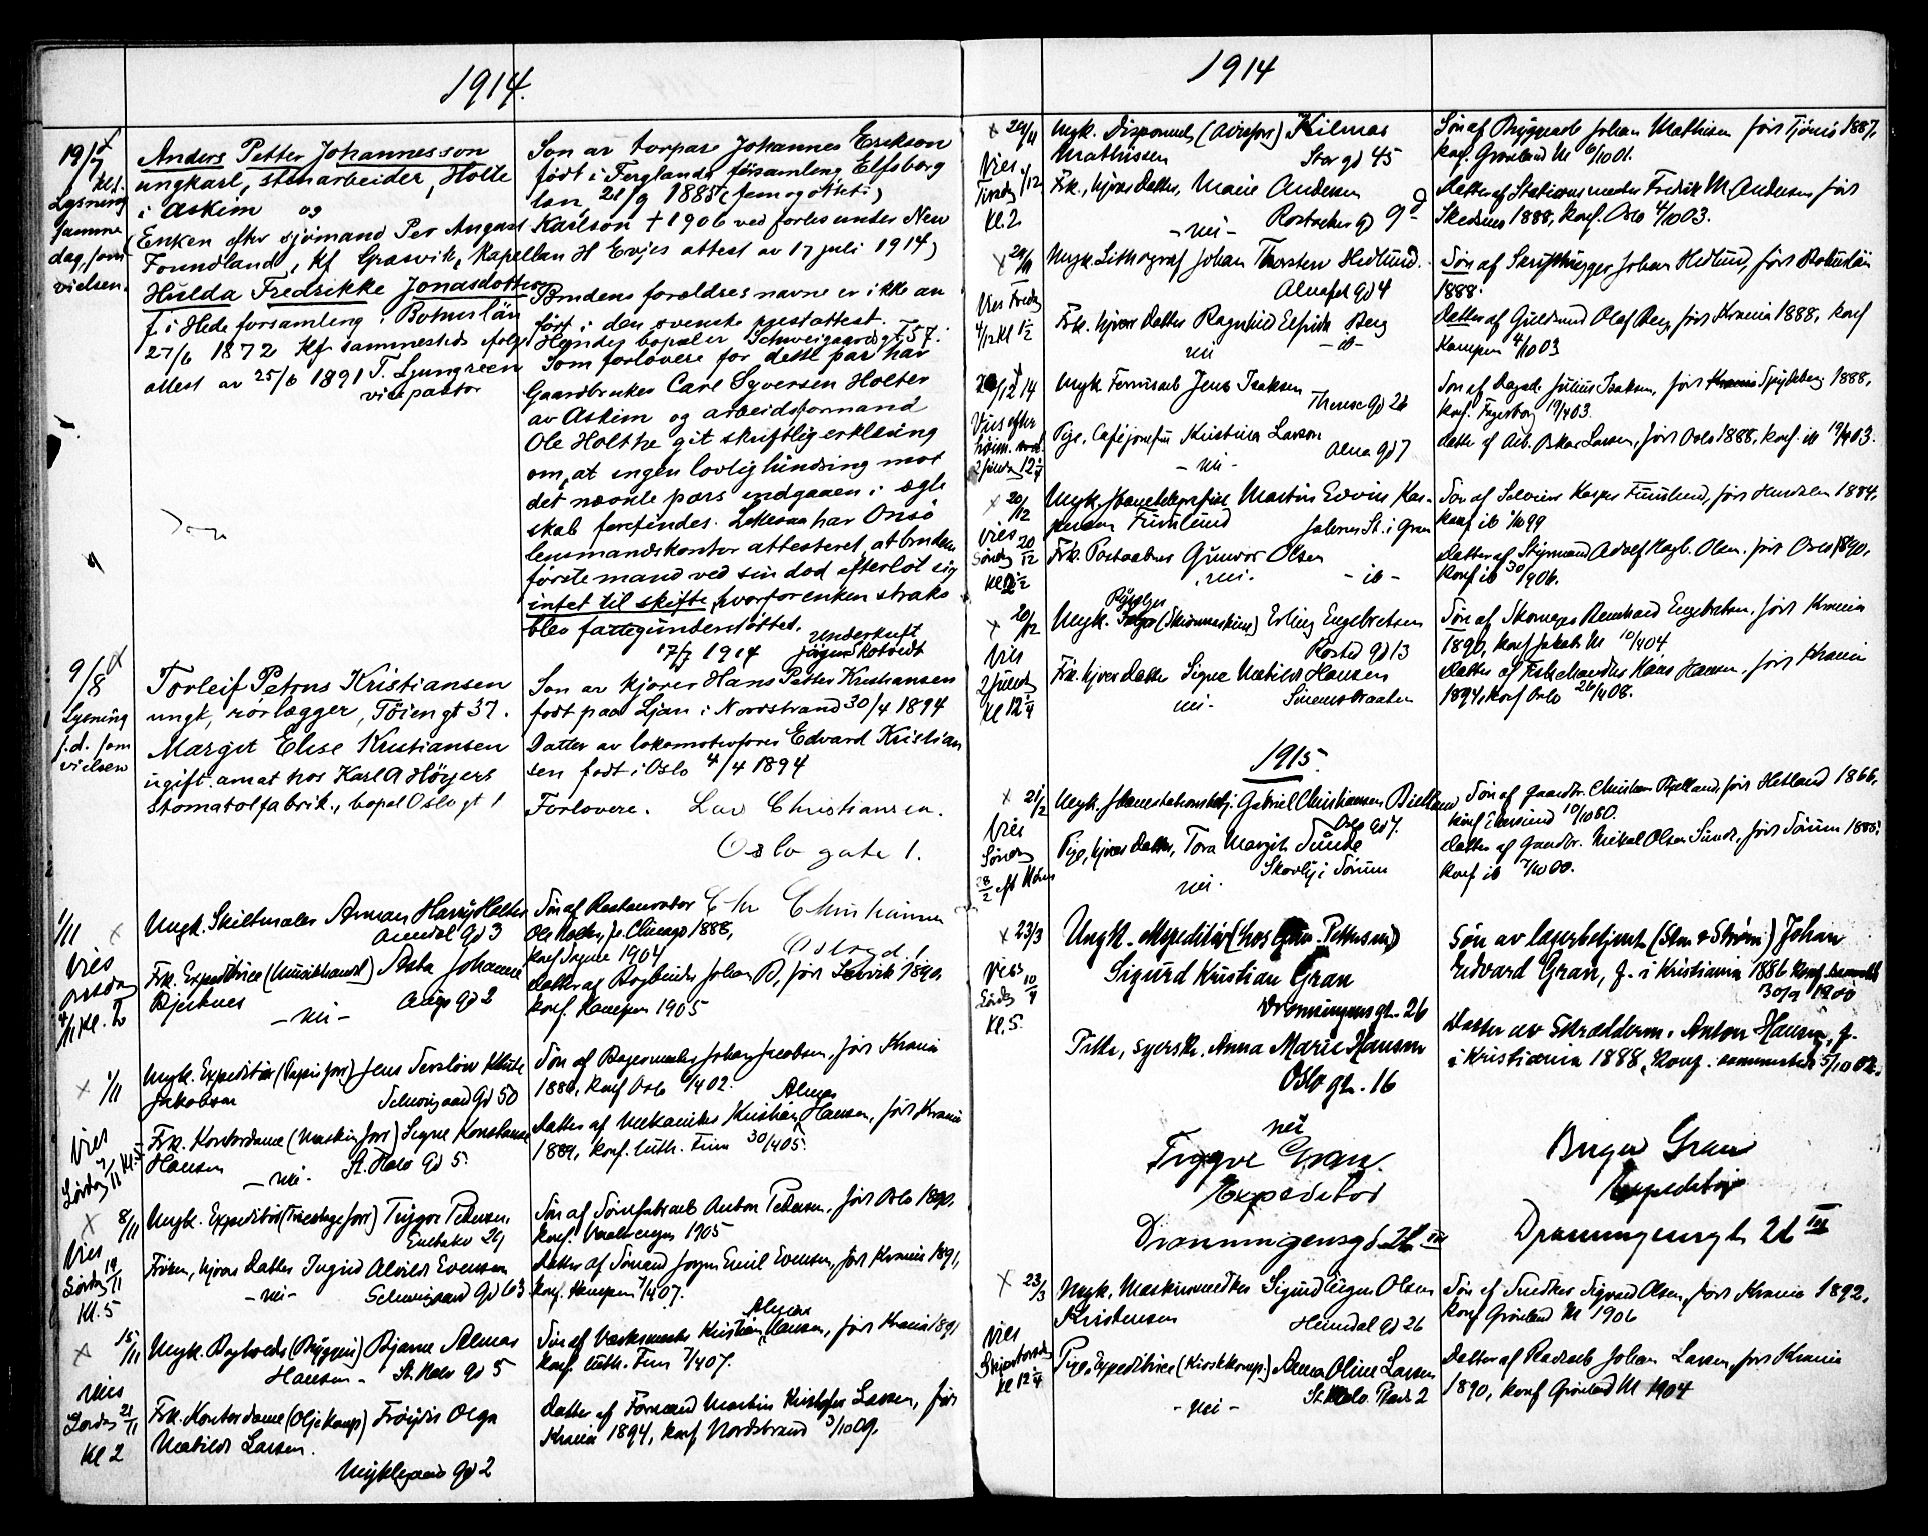 1914.
19/7
Kl.
Lysning
samme
dag, som
vielsen.
Anders Petter Johannesson
ungkarl, stenarbeider, Holte
i Askim og
(Enken efter sjömand Per August Karlson † 1906 ved forlis under New
Foundland, kf Grasvik, Kapellan H Evjes attest av 17 juli 1914)
Hulda Fredrikke Jonasdotter
f i Hede forsamling i Bohuslän
27/6 1872 kf sammesteds ifølge
attest av 25/6 1891 T. Ljungreen
vicepastor
Son av torpare Johannes Erikson
født i Ferglanda församling Elfsborg
lan, 21/9 1885 (fem og otti)
Brudens forældres navne er ikke an
ført i den svenske prestattest.
Hendes bopæl er Schweigaardsgt 57.
Som forlovere for dette par har
Gaardbruker Carl Syversen Holter
av Askim og arbeidsformand
Ole Holthe git skriftlig erklæring
om, at ingen lovlig hindring mot
det nævnte pars indgaaen i ægte
skab forefindes. Likesaa har Onsö
lensmandskontor attesteret, at brudens
første mand ved sin død efterlot sig
intet til skifte, hvorfor enken straks
blev fattigunderstøttet.
17/7 1914
9/8
Lysning
s.d. som
vielsen
Torleif Petrus Kristiansen
ungk, rørlægger, Tøiengt 37.
Margit Elise Kristiansen
ugift. ansat hos Karl A Höyers
Stomatolfabrik, bopæl Oslo gt 1
Son av kjører Hans Petter Kristiansen
født paa Ljan i Nordstrand 30/4 1894
Datter av lokomotivfører Edvard Kristian
sen født i Oslo 4/4 1894
Forlovere. Lav Christiansen.
Oslo gate 1.
Chr Christiansen
Oslo gd. 1.
1/11 ×
Vies
onsdag
4/11 kl.
Ungk. Skiltmaler Arman Harry Holter
Arendal gd 3
Frk. Expeditrice (Musikhandl) Asta Johanne
Bjerknes
- nei -
Søn af Restauratør
Ole Holter, f. Chicago 1888,
konf Sagene 1904
Datter af Bogbinder Johan B, født Larvik 1890,
konf. Kampen 1905
× 1/11
Vies
Lørdag 7/11 kl. 5
Ungk. Expeditør (Papirforr) Jens Torslov
Jakobsen
Schweigaard gd 50
Frk. Kontordame (Maskinforr) Signe Konstanse
Hansen - nei - St. Halv gd 5.
Søn af Bagermester Johan Jacobsen, født Krania
1880, konf Oslo 4/4 02.
Datter af Mekaniker Kristian Almar Hansen, født Krania
1889, konf. luth. Frim 30/4 05.
× 8/11
Vies
Lørdag 14/11
Kl. 5
Ungk. Expeditør Trygve Pettersen,
Enebakv 29
Frøken, hjvær Datter Ingrid Alvilde Evensen
- nei - Schweigaard gd 63
Søn af Tømfabrarb Anton Pettersen, født Oslo 1890,
konf. Vaalerengen 1905
Datter af Tømand Jørgen Emil Evensen, født Krania 1891,
konf. Kampen 7/4 07.
× 15/11
Vies
Lørdag 21/11
Kl 2
Ungk. Boghold (Bryggeri) Bjarne Almar
Hansen - St. Halv gd 5
Frk. Kontordame (Oljekomp) Frøydis Olga
Matilde Larsen.
Myklegaard gd 2
Søn af Værksmester Kristian Almar Hansen, født Krania 1891
konf. luth. Frim 7/4 07.
Datter af Formand Martin Kristofer Larsen, født
Krania 1894, konf Nordstrand 3/10 09.
1914
× 29/11
Vies
Tirsdag 1/12
Kl. 2
Ungk. Disponent (Avisforr) Hilmar
Mathissen
Stor gd 45
Frk., hjvær Datter, Marie Andersen
- nei - Rostocker gd 9
Søn af Bryggearb Johan Mathisen født Tjømø 1887,
konf. Grønland M 6/10 01.
Datter af Stationsmester Fredrik M Andersen født
Skedsmo 1888, konf. Oslo 4/10 03.
× 29/11
Vies Fredag
4/12 kl 1½
Ungk. Lithograf Johan Thorsten Hedlund.
Almafel gd 4
Frk. hjvær Datter Ragnhild Elfrida Berg
nei - ib -
Søn af Skrifthugger Johan Hedlund, født Bohuslän
1888.
Datter af Guldsmed Olaf Berg født Krania 1888, konf
Kampen 4/10 03
20/12 14
Vies efter
høim.
2 juledag 12¼
Ungk Formerarb Jens Isaksen
Therese gd 26
Pige, Caféjomfru Kristina Larsen
- nei - Alna gd 7
Søn af Dagarb Julius Isaksen, født Spydeberg 1888,
konf. Fagerborg 19/4 03.
Datter af Arb. Oskar Larsen, født Oslo 1888, konf. ib 19/4 03.
× 20/12
Vies
Søndag 20/12
Ungk. Banetelegrafist Martin Edvin Kas-
persen Furulund Jaleren St. i Gran
Frk. Postaabner Gunvor Olsen
nei. - ib -
Søn af Kasper Furulund, født Hurdalen 1884,
konf ib 1/10 99
Datter af Styrmand Adolf Olsen. født Oslo 1890,
konf ib 30/9 06.
× 20/12
Vies
2 juledag
Kl 12¼
Ungk. (Skomaskine) Erling Engebretsen
Rosted gd 13
Frk. hjvær Datter Signe Matilde Hansen
nei - Simensbraaten
Søn af Skomager Bernhard Engebretsen, født Krania
1890, konf Jakob M 10/4 04.
Datter af Fiskehandler Hans Hansen, født Krania
1894, konf Oslo 26/4 08.
1915.
× 21/2
Vies
Søndag
28/2 eft Høim
Ungk. Jernestationsbetj. Gabriel Christiansen Bjelland
Oslo gd 7.
Pige, hjvær Datter, Tora Margit Sunde
nei. Skovly i Sørum
Søn af gaardbr. Christian Bjelland, født Hetland 1866,
konf Ekersund 10/10 80.
Datter af Gaardbr. Mikal Olsen Sunde, født Sørum 1885,
konf ib 7/10 00.
× 23/3
Vies
Lørdag 10/4
Kl. 5.
Ungk. Expeditør (hos Gran Pettersen)
Sigurd Kristian Gran
Dronningensgt. 26
Pike, syersk. Anna Marie Hansen
Oslo gt. 16
nei
Trygve Gran.
Expeditør
Dronningensgd. 26 III
Søn av lagerbetjent (Sten & Strøm) Johan
Edvard Gran, f. i Kristiania 1886 konf. sammesteds
30/9 1900
Datter av Skræddern. Anton Hansen, f.
i Kristiania 1888, konf. sammesteds 5/10 02.
Birger Gran
Expeditør
Dronningensgt. 26 III
× 23/3
Vies
Skjærtorsdag
kl 12¼
Ungk. Maskinsmedker Sigurd Eugen Olsen
Kristensen Heimdal gd 26
Pige, Expeditrice (Kioskkomp.) Anna Oline Larsen
- nei - St. Halv. Plads 2
Søn af Snedker Sigvard Olsen, født Krania 1892,
konf Grønland M 1906
Datter af Pladsarb Johan Larsen, født Krania
1890, konf Grønland M 1904